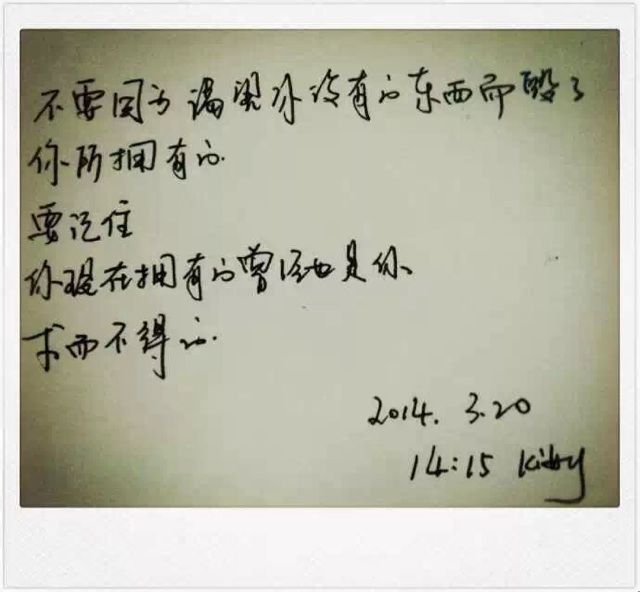 不要因为渴望你没有的东西而毁了
你所拥有的.
要记住
你现在拥有的曾经也是你
求而不得的.
2014. 3.20
14:15